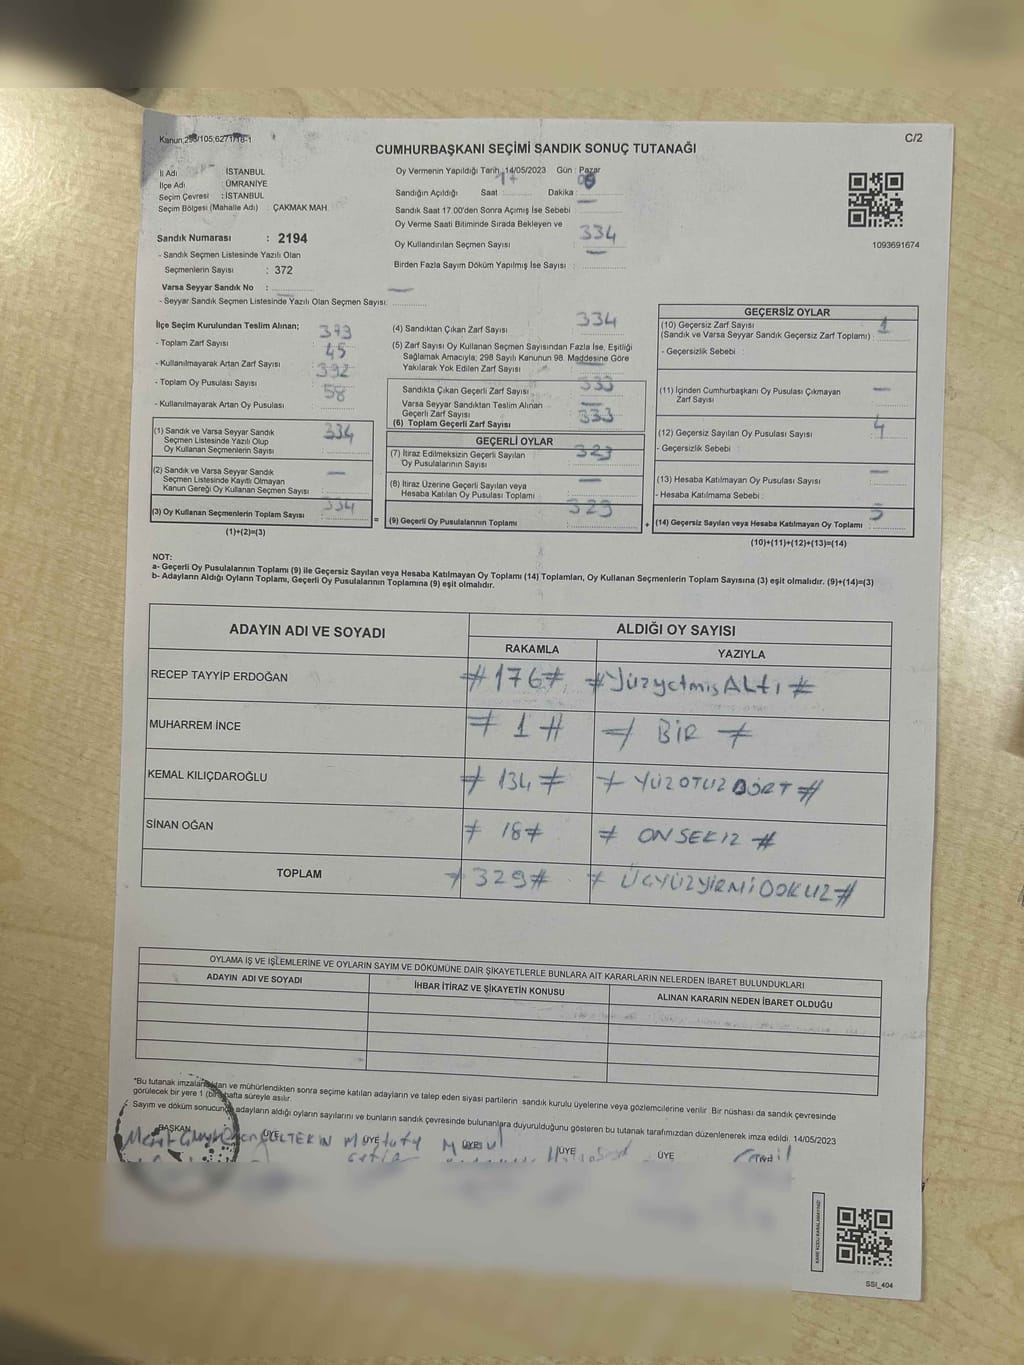 Kanun,298/105;6271/18-1
C/2
CUMHURBAŞKANI SEÇİMİ SANDIK SONUÇ TUTANAĞI
İl Adı : İSTANBUL
İlçe Adı : ÜMRANİYE
Seçim Çevresi : İSTANBUL
Seçim Bölgesi (Mahalle Adı) : ÇAKMAK MAH.
Oy Vermenin Yapıldığı Tarih : 14/05/2023 Gün : Pazar
Sandığın Açıldığı Saat 17 Dakika : 00
Sandık Saat 17.00'den Sonra Açımış İse Sebebi :
Oy Verme Saati Bitiminde Sırada Bekleyen ve
Oy Kullandırılan Seçmen Sayısı 334
Birden Fazla Sayım Döküm Yapılmış İse Sayısı :
1093691674
Sandık Numarası : 2194
- Sandık Seçmen Listesinde Yazılı Olan
Seçmenlerin Sayısı : 372
Varsa Seyyar Sandık No :
- Seyyar Sandık Seçmen Listesinde Yazılı Olan Seçmen Sayısı:
İlçe Seçim Kurulundan Teslim Alınan;
- Toplam Zarf Sayısı
- Kullanılmayarak Artan Zarf Sayısı 45
- Toplam Oy Pusulası Sayısı 392
- Kullanılmayarak Artan Oy Pusulası 58
(1) Sandık ve Varsa Seyyar Sandık
Seçmen Listesinde Yazılı Olup
Oy Kullanan Seçmenlerin Sayısı 334
(2) Sandık ve Varsa Seyyar Sandık
Seçmen Listesinde Kayıtlı Olmayan
Kanun Gereği Oy Kullanan Seçmen Sayısı —
(3) Oy Kullanan Seçmenlerin Toplam Sayısı 334
(1)+(2)=(3)
(4) Sandıktan Çıkan Zarf Sayısı 334
(5) Zarf Sayısı Oy Kullanan Seçmen Sayısından Fazla İse, Eşitliği
Sağlamak Amacıyla; 298 Sayılı Kanunun 98. Maddesine Göre
Yakılarak Yok Edilen Zarf Sayısı —
Sandıkta Çıkan Geçerli Zarf Sayısı 333
Varsa Seyyar Sandıktan Teslim Alınan
Geçerli Zarf Sayısı —
(6) Toplam Geçerli Zarf Sayısı 333
GEÇERLİ OYLAR
(7) İtiraz Edilmeksizin Geçerli Sayılan
Oy Pusulalarının Sayısı 329
(8) İtiraz Üzerine Geçerli Sayılan veya
Hesaba Katılan Oy Pusulası Toplamı —
= (9) Geçerli Oy Pusulalarının Toplamı 329
GEÇERSİZ OYLAR
(10) Geçersiz Zarf Sayısı
(Sandık ve Varsa Seyyar Sandık Geçersiz Zarf Toplamı) : 1
- Geçersizlik Sebebi :
(11) İçinden Cumhurbaşkanı Oy Pusulası Çıkmayan
Zarf Sayısı —
(12) Geçersiz Sayılan Oy Pusulası Sayısı 4
- Geçersizlik Sebebi :
(13) Hesaba Katılmayan Oy Pusulası Sayısı —
- Hesaba Katılmama Sebebi :
+ (14) Geçersiz Sayılan veya Hesaba Katılmayan Oy Toplamı 5
(10)+(11)+(12)+(13)=(14)
NOT:
a- Geçerli Oy Pusulalarının Toplamı (9) ile Geçersiz Sayılan veya Hesaba Katılmayan Oy Toplamı (14) Toplamları, Oy Kullanan Seçmenlerin Toplam Sayısına (3) eşit olmalıdır. (9)+(14)=(3)
b- Adayların Aldığı Oyların Toplamı, Geçerli Oy Pusulalarının Toplamına (9) eşit olmalıdır.
ADAYIN ADI VE SOYADI
ALDIĞI OY SAYISI
RAKAMLA YAZIYLA
RECEP TAYYİP ERDOĞAN #176# #YüzyetmişALtı#
MUHARREM İNCE # 1 # # BİR #
KEMAL KILIÇDAROĞLU # 134 # # YÜZOTUZDÖRT #
SİNAN OĞAN # 18# # ONSEKİZ #
TOPLAM # 329# # ÜÇYÜZYİRMİDOKUZ#
OYLAMA İŞ VE İŞLEMLERİNE VE OYLARIN SAYIM VE DÖKÜMÜNE DAİR ŞİKAYETLERLE BUNLARA AİT KARARLARIN NELERDEN İBARET BULUNDUKLARI
ADAYIN ADI VE SOYADI İHBAR İTİRAZ VE ŞİKAYETİN KONUSU ALINAN KARARIN NEDEN İBARET OLDUĞU
*Bu tutanak imzalandıktan ve mühürlendikten sonra seçime katılan adayların ve talep eden siyasi partilerin sandık kurulu üyelerine veya gözlemcilerine verilir. Bir nüshası da sandık çevresinde
görülecek bir yere 1 (bir) hafta süreyle asılır.
Sayım ve döküm sonucunda adayların aldığı oyların sayılarını ve bunların sandık çevresinde bulunanlara duyurulduğunu gösteren bu tutanak tarafımızdan düzenlenerek imza edildi. 14/05/2023
BAŞKAN ÜYE ÜYE ÜYE ÜYE ÜYE
SSI_404